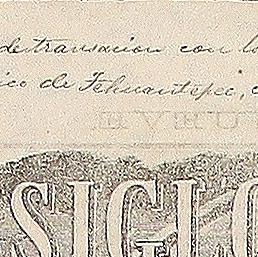 de transacion con la
ico de Tehuantepec,
SIGLO